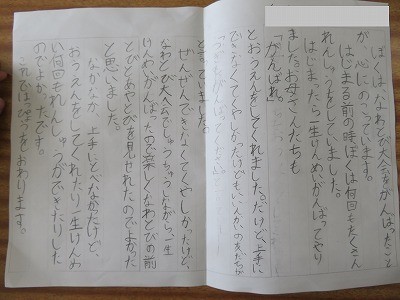 ぼくは、なわとび大会をがんばったこと
が、心にのこっています。
はじまる前の時、ぼくは何回もたくさん
れんしゅうをしていました。
はじまったら一生けんめいがんばってやり
ました。お母さんたちも
「がんばれ。」
とおうえんをしてくれました。だけど、上手に
できなくてくやしかったけども、
と言っていました。
ぜんぜんできなくてくやしかったけど、
なわとび大会でしゅうちゅうしながら、一生
けんめいがんばったので楽しくなわとびの前
とびとあやとびを見せれたのでよかった
と思いました。
なかなか、上手にとべなかたけど、
おうえんをしてくれたり一生けんめ
い何回もれんしゅうができたりした
のでよかたです。
これではっぴょうをおわります。